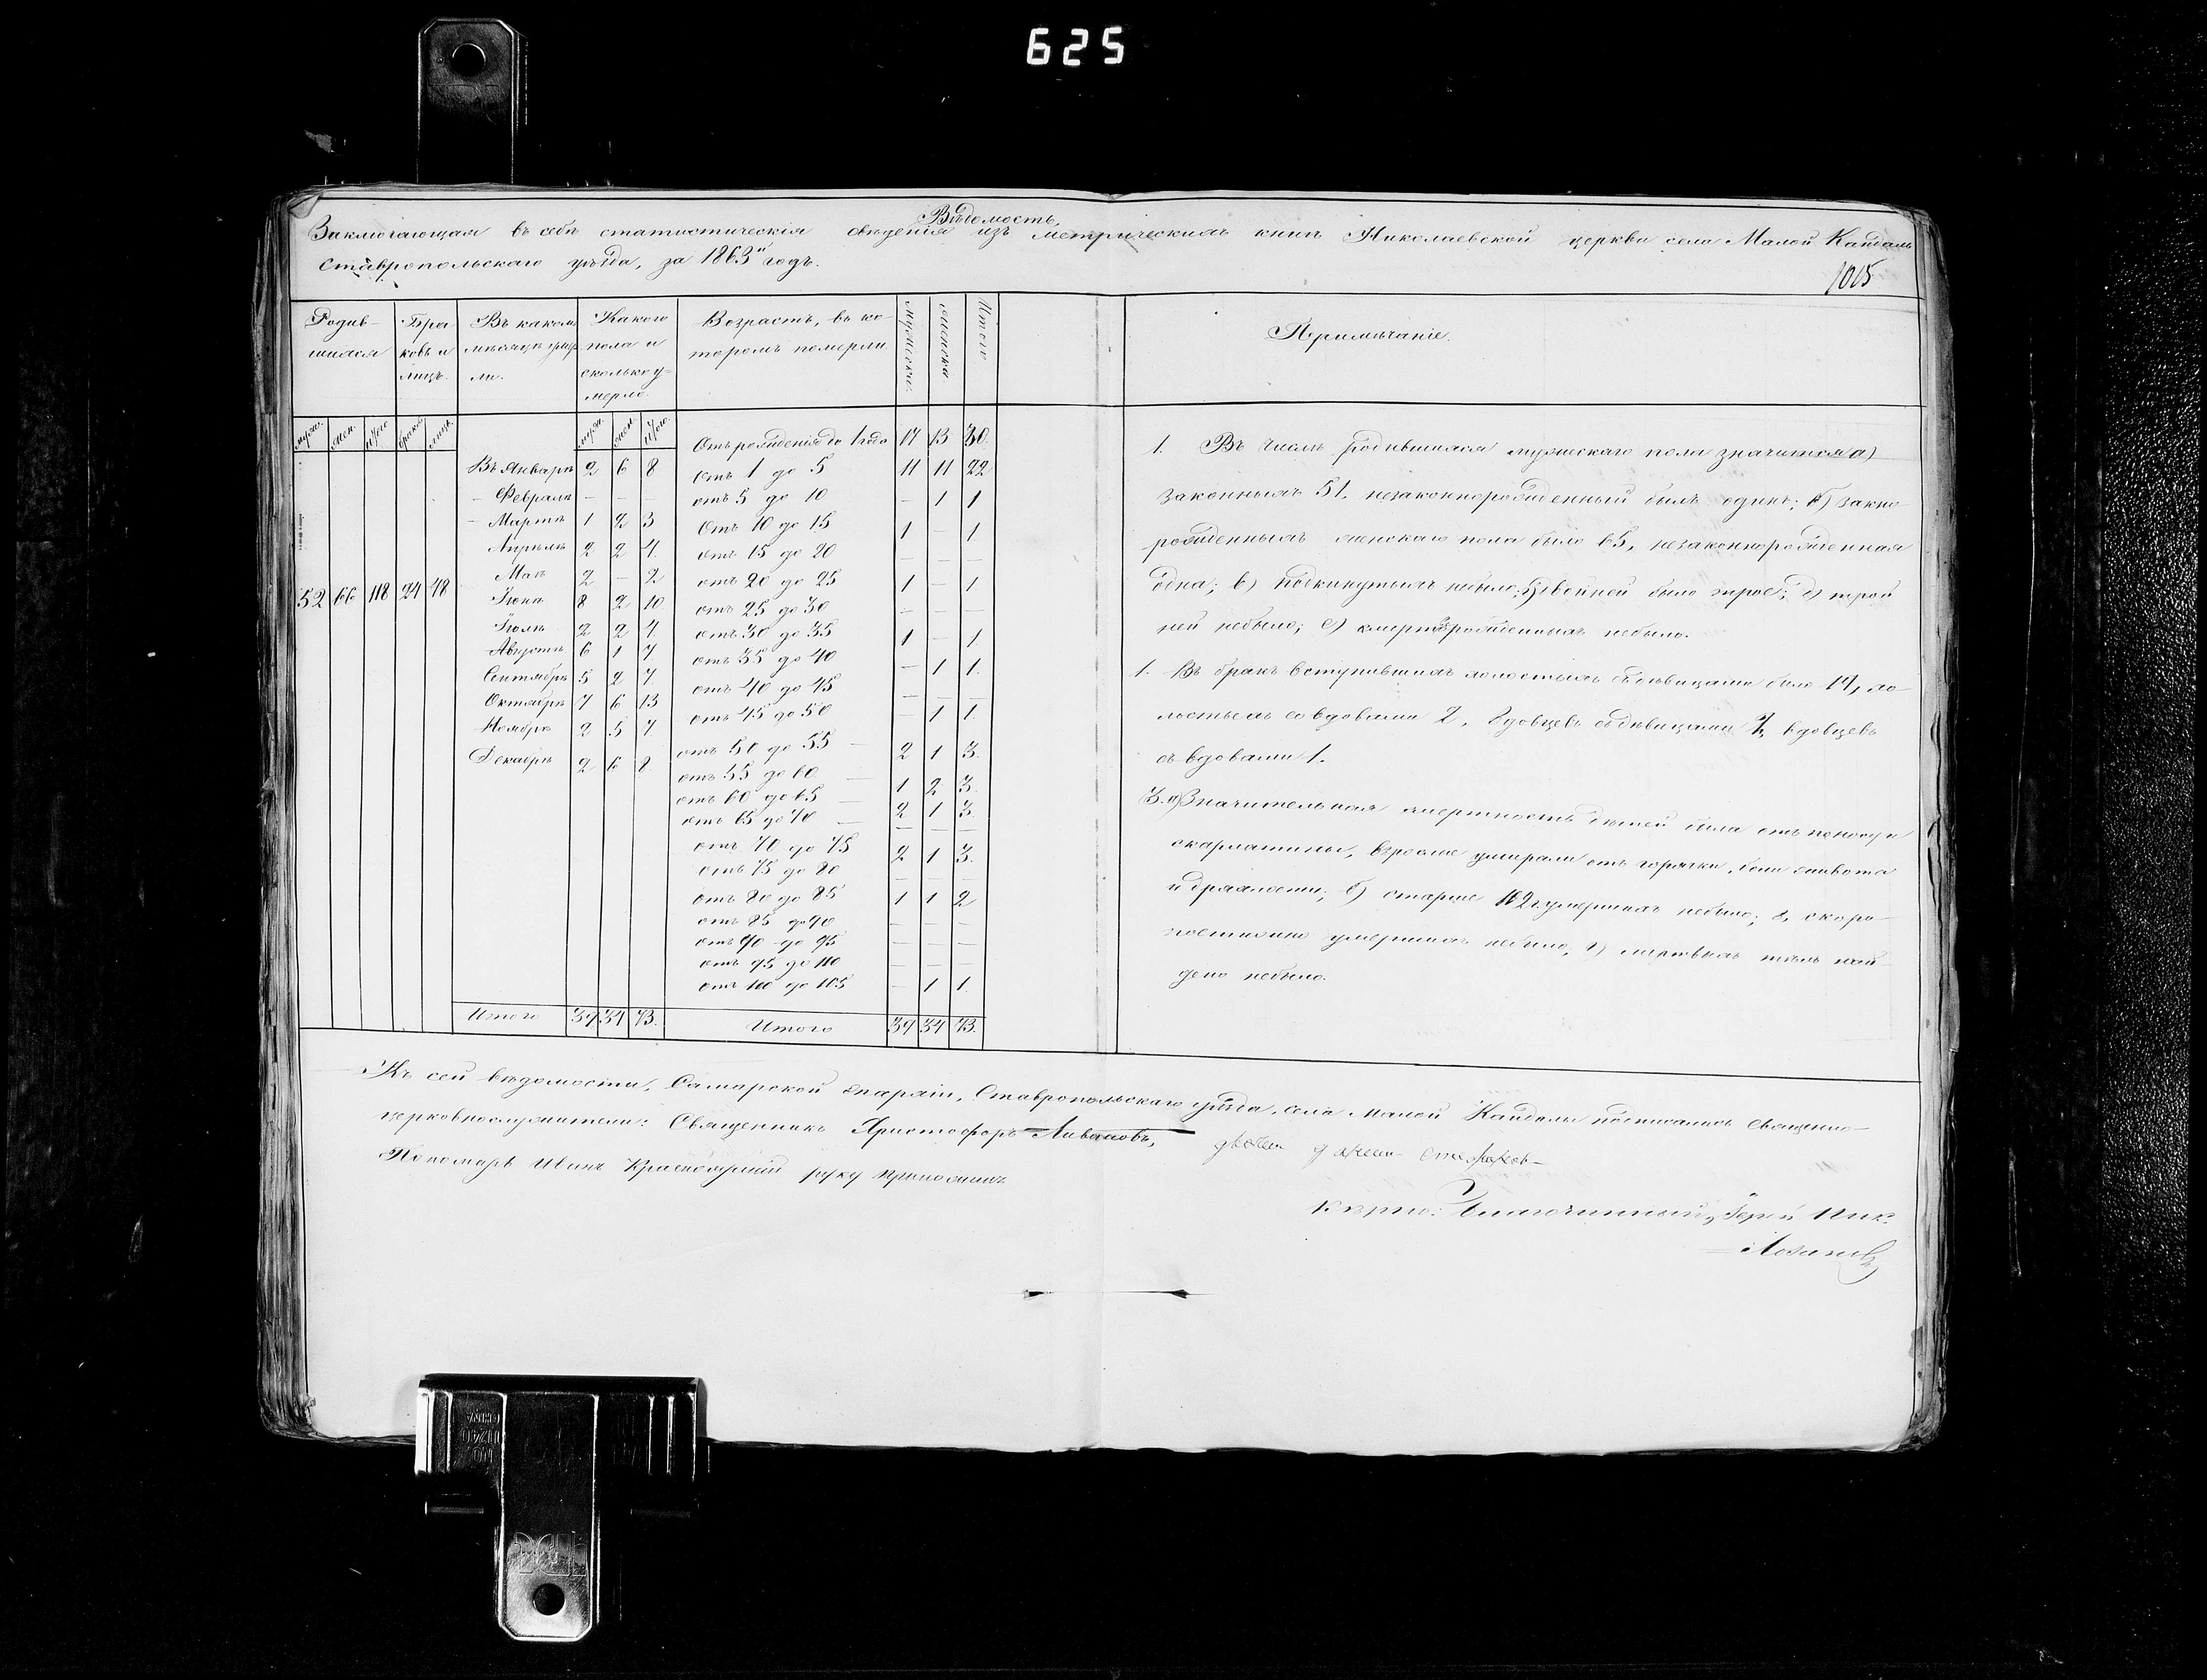 625
Вѣдомость,
Заключающая въ себѣ статистическія свѣденія изъ метрическихъ книгъ Николаевской церкви села Малой Кандалы
Ставропольскаго уѣзда, за 1863й годъ.
1015
Родив- Бра- Въ какомъ Какого Возрастъ, въ ко- Мужеска. Женска. Итого Примѣчаніе.
шихся ковъ и мѣсяцѣ умер- пола и торомъ померли
лицъ. ли. сколько у-
мерло.
муж. жен. итого браков лицъ. муж. жен. итого.
Отъ рожденія до 1 года 17 13 30.
Въ Январѣ 2 6 8 Отъ 1 до 5 11 11 22
— Февралѣ — — — отъ 5 до 10 — 1 1
— Мартѣ 1 2 3 Отъ 10 до 15 1 — 1
Апрѣлѣ 2 2 4. отъ 15 до 20 — — —
Маѣ 2 — 2 отъ 20 до 25 1 — 1
52 66 118 24 48 Іюнѣ 8 2 10 отъ 25 до 30 — — —
Іюлѣ 2 2 4. отъ 30 до 35 1 — 1
Августѣ 6 1 7 отъ 35 до 40 — 1 1.
Сентябрѣ 5 2 7 отъ 40 до 45 — — —
Октябрѣ 7 6 13 отъ 45 до 50 — 1 1.
Ноябрѣ 2 5 7 отъ 50 до 55 — 2 1 3.
Декабрѣ 2 6 8. отъ 55 до 60 — 1 2 3.
отъ 60 до 65 — 2 1 3.
отъ 65 до 70 — — — —
отъ 70 до 75 2 1 3.
отъ 75 до 80 — — —
отъ 80 до 85 1 1 2
отъ 85 до 90 — — —
отъ 90 до 95 — — —
отъ 95 до 100 — — —
отъ 100 до 105 — 1 1.
Итого 39 34 73. Итого 39 34 73.
1. Въ числѣ родившихся мужескаго пола значится а)
законныхъ 51, незаконнорожденный былъ одинъ; б) закно-
рожденныхъ женскаго пола было 65, незаконнорожденная
одна; в) подкинутыхъ небыло; г) двойней было трое; д) трой
ней небыло; е) смерторожденныхъ небыло.
1. Въ бракъ вступившихъ холостыхъ съ дѣвицами было 14, хо-
лостыхъ со вдовами 2, вдовцевъ съ дѣвицами 7, вдовцевъ
съ вдовами 1.
3. а) Значительная смертность дѣтей была отъ поноса и
скарлатины, взрослые умирали отъ горячки, боли живота
и дряхлости; б) старше 102 г. умершихъ небыло; в, скоро-
постижно умершихъ небыло, г) мертвыхъ тѣлъ най
дено небыло.
Къ сей вѣдомости, Самарской Епархіи, Ставропольскаго уѣзда, села Малой Кандалы подписались священно-
церковнослужители: Священникъ Христофоръ Ливановъ,
Пономарь Иванъ руку приложилъ
вѣрно: Благочинный, Іерей Ник.